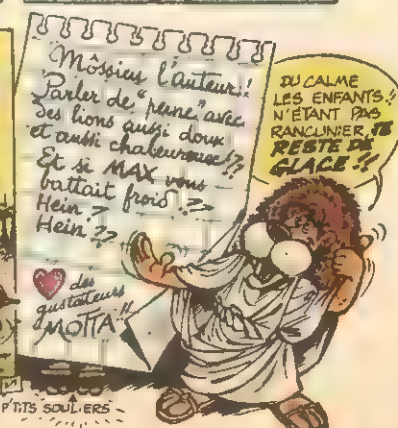 Môssieu l'auteur!!
Parler de "peine" avec
des lions aussi doux
et aussi chaleureux!?
Et si MAX vous
battait froid!??
Hein?
Hein??
des
gustateurs
MOTTA"!!
DU CALME
LES ENFANTS!!
N'ÉTANT PAS
RANCUNIER, JE
RESTE DE
GLACE!!
P'TITS SOULIERS